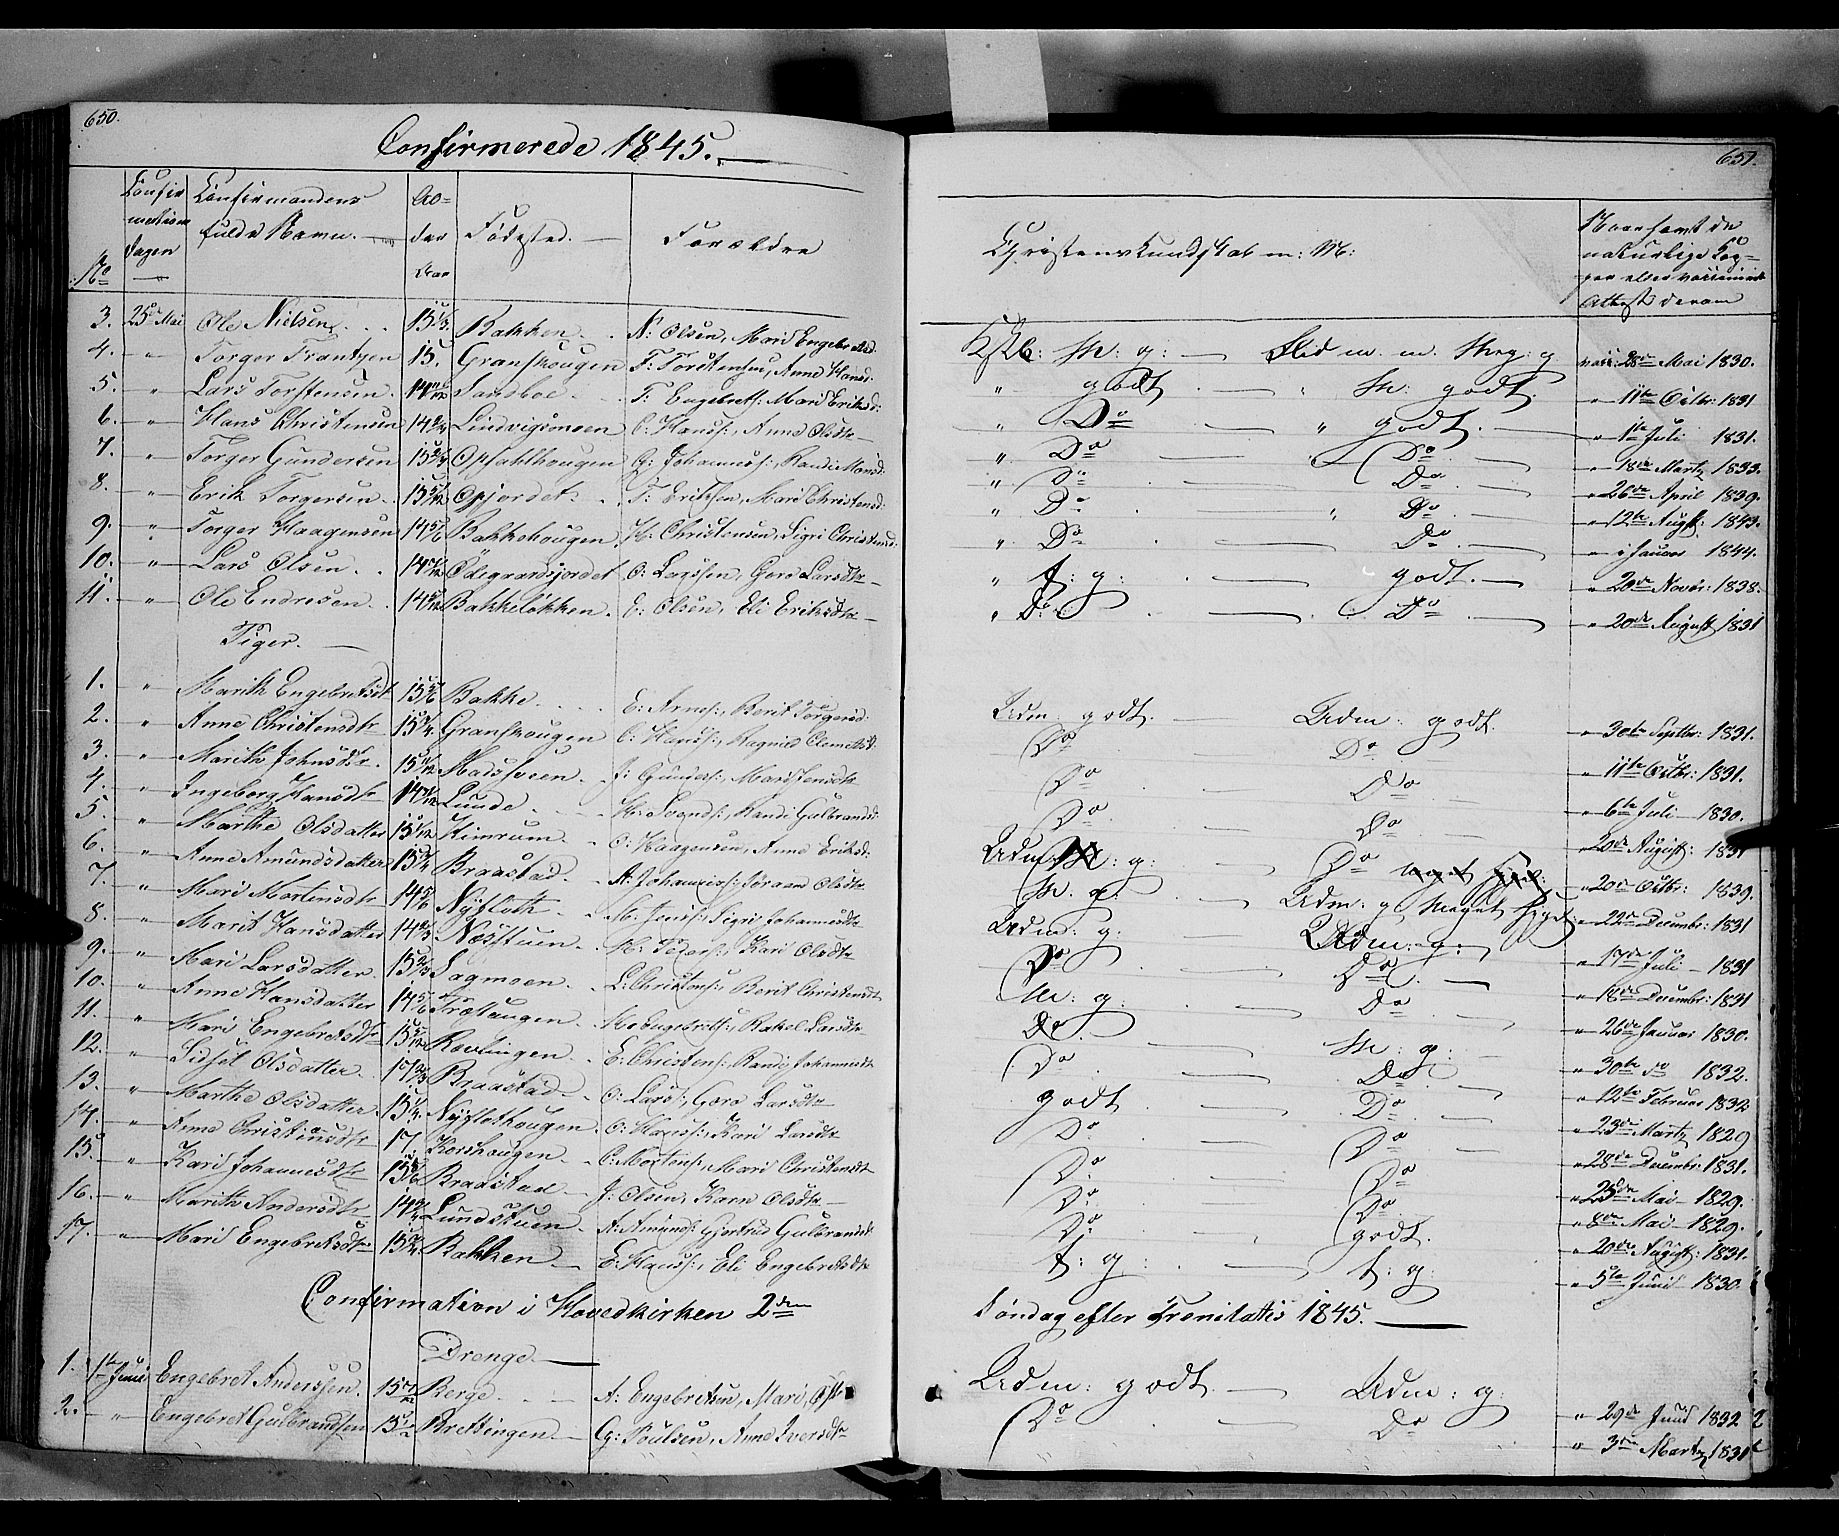 650.
Confirmerede 1845.
No
Confirmationsdagen
Confirmandens fulde Navn.
Alder Aar
Fødested.
Forældre
3. 25de Mai Ole Nielsen 15 1/3 Bakken N: Olsen, Mari Engebretsd.
4. " Torger Frantzen 15. Granshougen F: Torstensen, Anne Hansd.
5. " Lars Torstensen 14 Sandboe T: Engebrets: Mari Eriksd:
6. " Hans Christensen 14 Lindvigsmoen C: Hanss:, Anne Olsdtr
7. " Torger Gundersen 15 Opsahlhougen G: Johanness:, Randi Hansd.
8. " Erik Torgersen 15 Opjordet T: Erikssen, Mari Christensd.
9. " Torger Haagensen 14 5/6 Bakkehougen H: Christensen, Sigri Christensd.
10. " Lars Olsen 14 Ødegaardsjordet O: Larssen, Goro Larsdtr
11. " Ole Endresen 14 Bakkeløkken E: Olsen, Eli Eriksdtr
Piger.
1. " Marith Engebretsdt 15 5/6 Bakke E: Arnes:, Berit Torgersd.
2. " Anne Christensdtr 15 Granshougen C: Hanss:, Ragnild Clemetsd.
3. " Marith Johnsdtr 15 Madssveen J: Gunders:, Mari Jensdtr
4. " Ingeborg Hansdtr 14 Lunde H: Svends:, Randi Gulbrandsd.
5. " Marthe Olsdatter 15 Kimrum O: Haagensen, Anne Eriksd:
6. " Anne Amundsdatter 15 Braastad A: Johanness:, Jøraan Olsdtr
7. " Mari Mortensdtr 14 5/6 Nyfloth M: Jens: Sigri Johannesdtr
8. " Marit Hansdatter 14 Næsstuen H: Peders:, Kari Olsdtr
9. " Mari Larsdatter 15 2/3 Sagmoen L: Christens:, Berit Christensdt
10. " Anne Hansdatter 14 5/6 H: Engebrets:, Rakel Larsdtr
11. " Mari Engebretsdtr 15 Røvlingen E: Christens:, Randi Johannesdt
12. " Sidsel Olsdatter 17 2/3 Braastad O: Larss:, Goro Larsdtr
13. " Marthe Olsdatter 15 1/4 Nyflothougen O: Hanss:, Kari Larsdtr
14. " Anne Christiansdtr 17 Korshougen C: Mortens:, Mari Christensdt
15. " Kari Johannesdtr 15 Braastad J: Olsen, Karn Olsdtr
16. " Marith Andersdtr 14 Lundstuen A: Amunds: Gjertrud Gulbrandsdt
17. " Mari Engebretsdtr 15 Bakken E: Hanss:, Eli Engebretsdtr
Confirmation i Hovedkirken 2den
Drenge
1. 1ste Juni Engebret Anderssen. 15 Berge A: Engebretsen, Mari
2. " Engebret Gulbrandsen 15 Brettingen G: Poulsen, Anne Iversdtr
651.
Christenskundskab m: M:
Hvor samt de naturlige Kopper eller vaccineret Attest derom
M: g: Flid m. m. Meg: g vacc: 28de Mai 1830.
" godt " M: godt. " 11te Octbr: 1831
" Do " godt. " 1te Juli 1831.
" Do " Do " 18de Martz 1833.
" Do Do " 26de April 1839.
" Do " Do " 12te Augst: 1843.
" Do Do " i Januar 1844.
" t: g: godt. " 20de Novbr: 1838.
" Do Do " 20de August 1831
Udm godt. Udm: godt. " 30te Septbr: 1831.
Do Do " 11te Octbr: 1831.
Do Do " 6te Juli 1830.
Do Do " 20de August: 1831
Udm: g: Do " 20de Octbr: 1839.
M: g: Udm: g Meget " 22de Decembr: 1831
Udm: g: Udm: g: " 17de Juli 1831
Do Do " 18de Decembr: 1831
M: g: Do " 26de Januar 1830.
Do M: g: " 30te do 1832.
Do Do " 12te Februar 1832
godt Do " 23de Martz 1829
Do Do " 28de Decembr: 1831.
Do Do " 25de Mai 1829.
Do Do " 8de Mai 1829.
Do godt. " 20de August: 1831.
t: g: t: g: " 5te Junii 1830.
Søndag efter Trenitatis 1845.
Udm: godt Udm: g: " 29de Junii 1832
Do Do " 3die Martz 1831